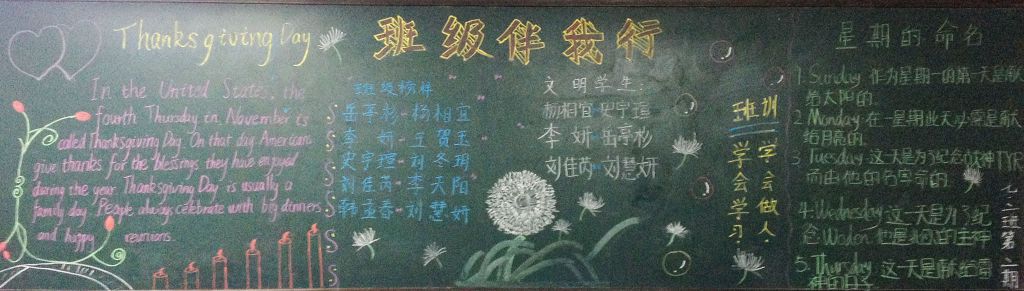 Thanksgiving Day
In the United States, the
fourth Thursday in November is
called Thanksgiving Day. On that day, Americans
give thanks for the blessings they have enjoyed
during the year. Thanksgiving Day is usually a
family day. People always celebrate with big dinners
and happy reunions.
班级伴我行
班级榜样
岳亭杉-杨相宜
李妍-丘贺玉
史宇瑄-刘冬明
刘佳芮-李天阳
韩孟春-刘慧妍
文明学生:
杨相宜 史宇瑄
李妍-岳亭杉
刘佳芮-刘慧妍
班训
学会做人
学会学习
星期的命名
1. Sunday 作为星期一的第一天是献
给太阳的.
2 Monday 在一星期此天必需是献
给月亮的.
3 Tuesday 这一天是为了纪念战神TYR
而由他的名字命的.
4. Wednesday 这一天是为了纪
念 Woden 他是北欧的主神
5. Thursday 这一天是献给雷
神的日子
九二班第二期